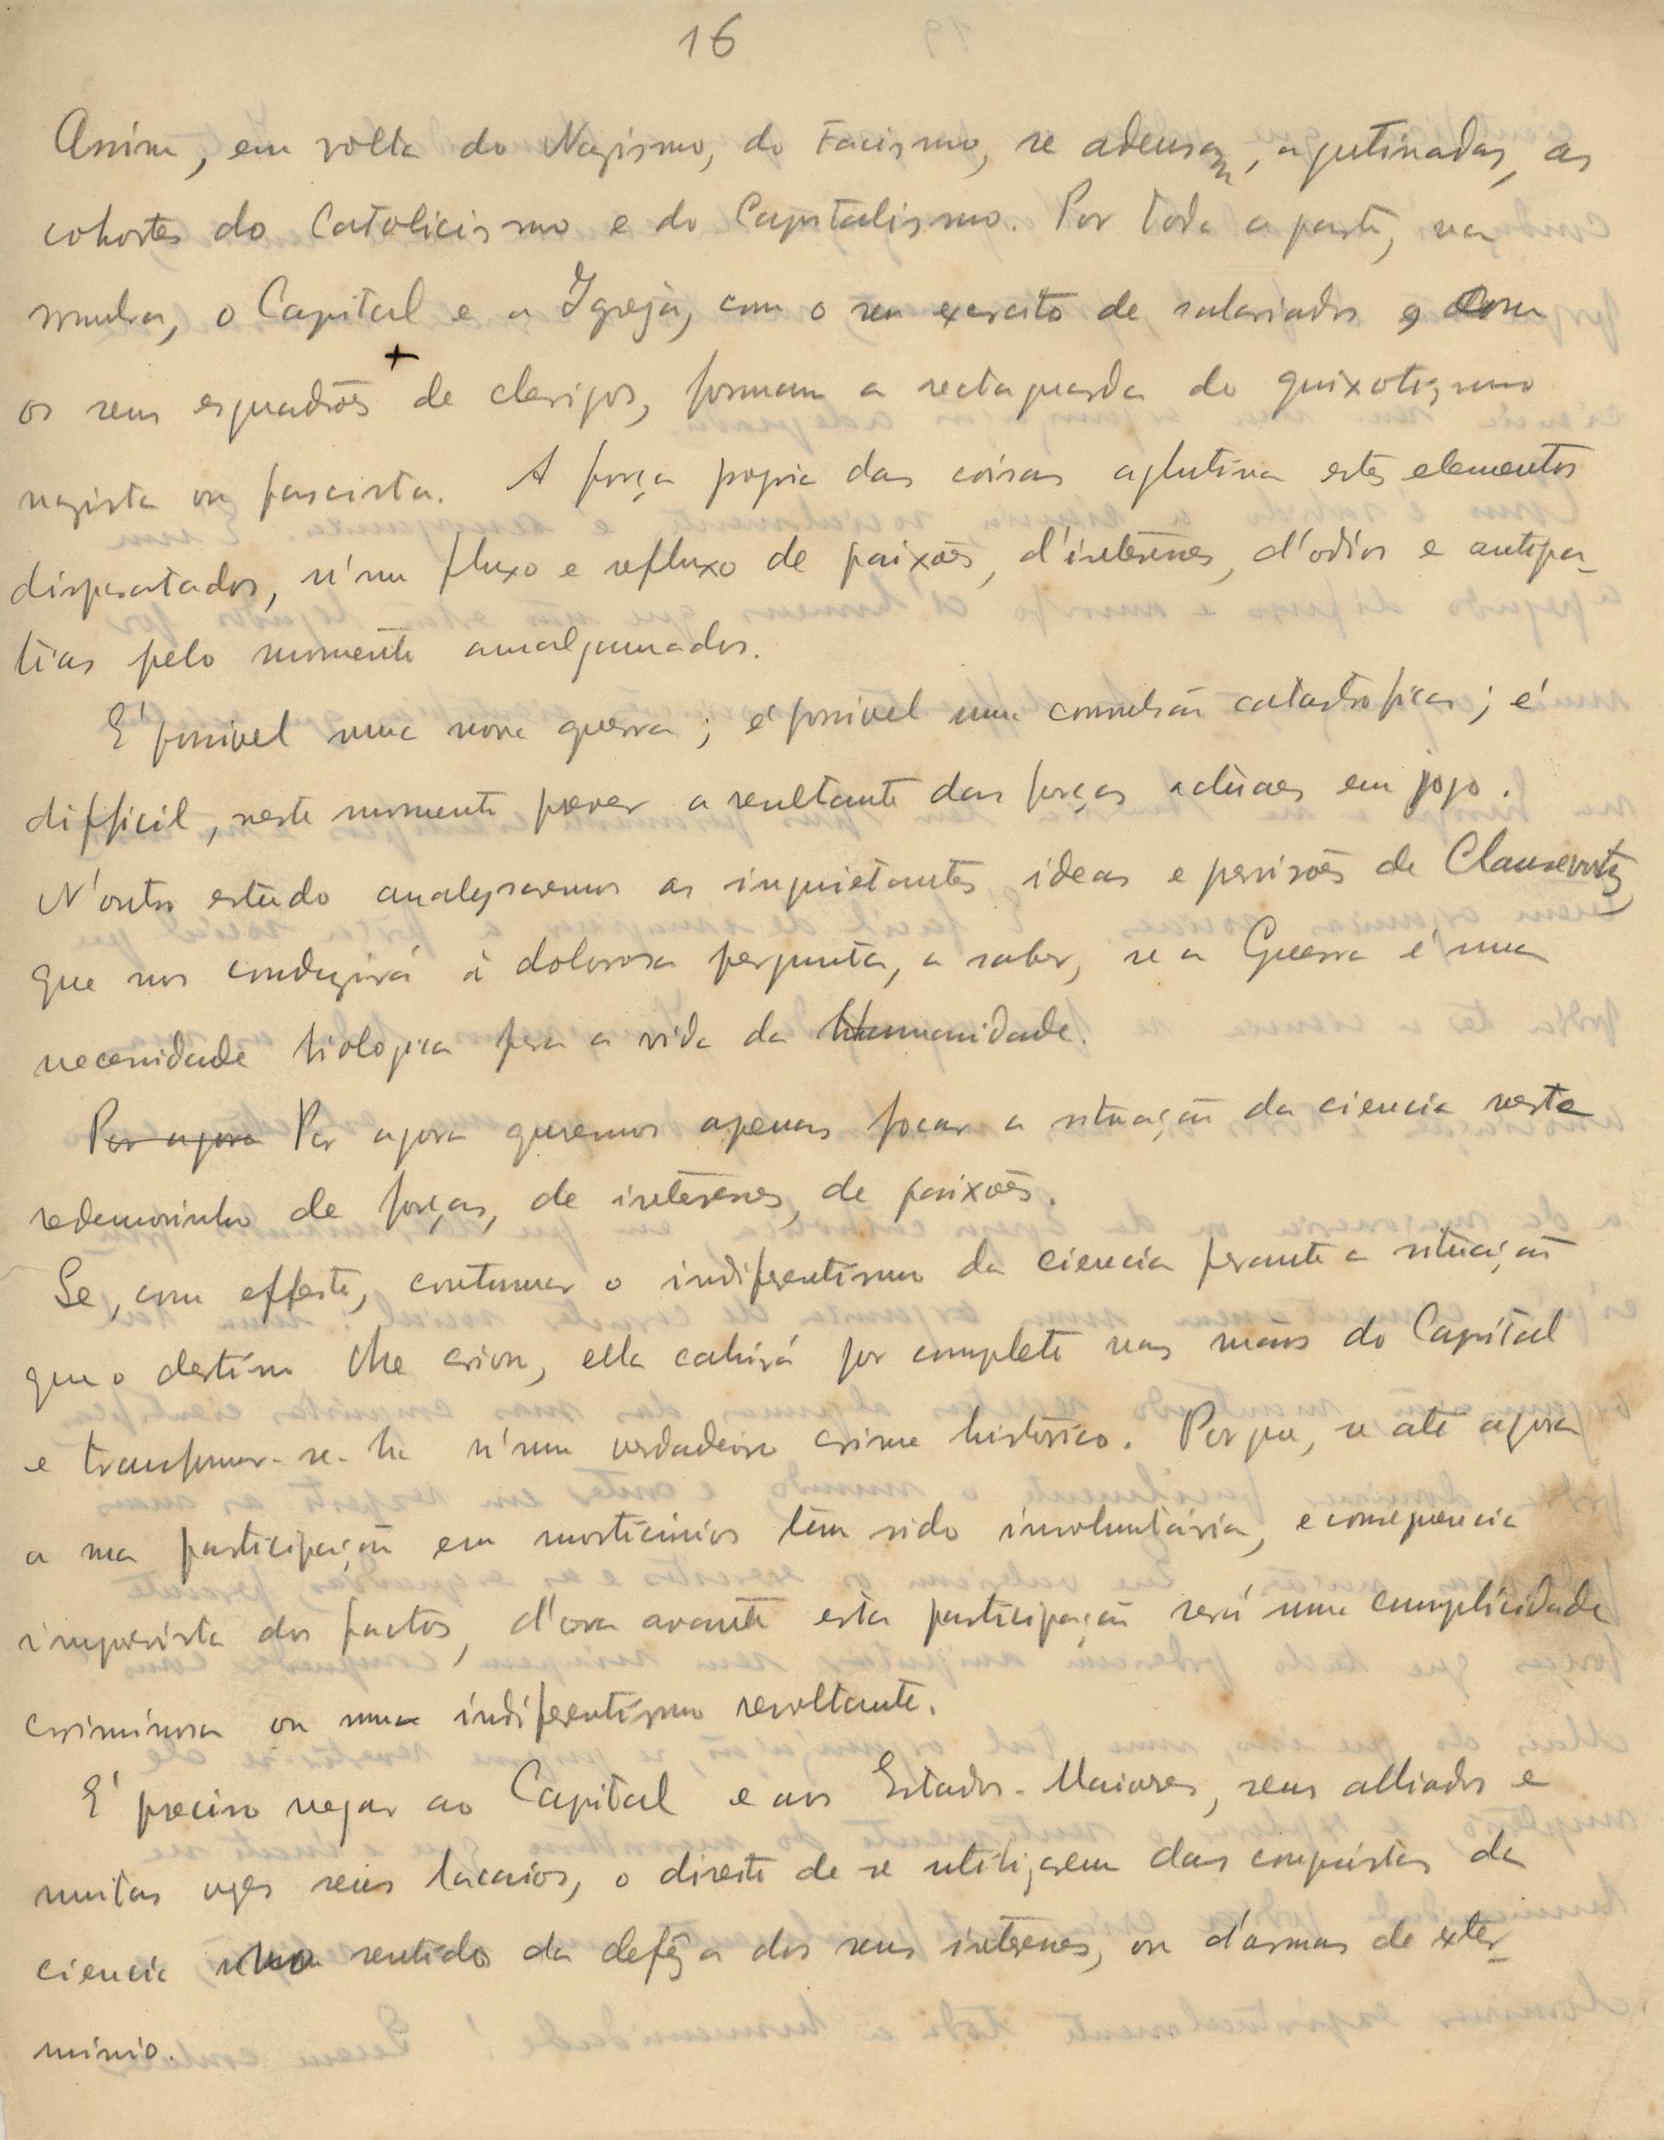 16
Assim, em volta do Nazismo, do Facismo, se adensam, aglutinadas, as
cohortes do Catolicismo e do Capitalismo. Por toda a parte, na
sombra, o Capital e a Igreja, com o seu exercito de salariados e com
os seus esquadrões + de clerigos, formam a rectaguarda do quixotismo
nazista ou fascista. A força propria das coisas aglutina estes elementos
disparatados, n'um fluxo e refluxo de paixões, d'interesses, d'odios e antipa-
tias pelo momento amalgamados.
E' possivel uma nova guerra; é possivel uma convulsão catastrofica; é
difficil, neste momento prever a resultante das forças actuaes em jogo.
N'outro estudo analysaremos as inquietantes ideas e previsões de Clausewitz,
que nos conduzirá á dolorosa pergunta, a saber, se a Guerra é uma
necessidade biologica para a vida da Humanidade.
Por agora Por agora queremos apenas focar a situação da ciencia neste
redemoinho de forças, de interesses, de paixões.
Se, com effeito, continuar o indiferentismo da ciencia perante a situação
que o destino lhe criou, ella cahirá por completo nas mãos do Capital
e transformar-se-ha n'um verdadeiro crime historico. Porque, se até agora
a sua participação em morticinios tem sido involuntária, e consequencia
imprevista dos factos, d'ora avante esta participação será uma cumplicidade
criminosa ou uma indiferentismo revoltante.
E' preciso negar ao Capital e aos Estados-Maiores, seus alliados e
muitas vezes seus lacaios, o direito de se utilizarem das conquistas da
ciencia no sentido da defeza dos seus interesses, ou d'armas de exter-
minio.